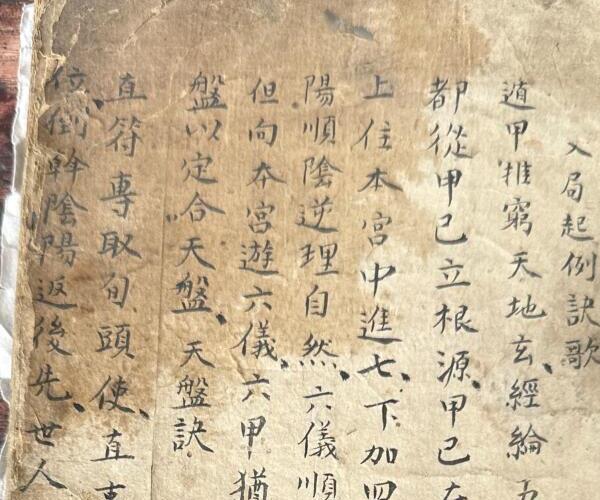 入局起例訣歌
遁甲推窮天地玄、經綸
都從甲己立根源、甲己
上住本宮中進七、下加四
陽順陰逆理自然、六儀順
但向本宮遊六儀、六甲猶
盤以定合天盤、天盤訣
直符專取旬頭使、直
位、倒斡陰陽返後先、世人